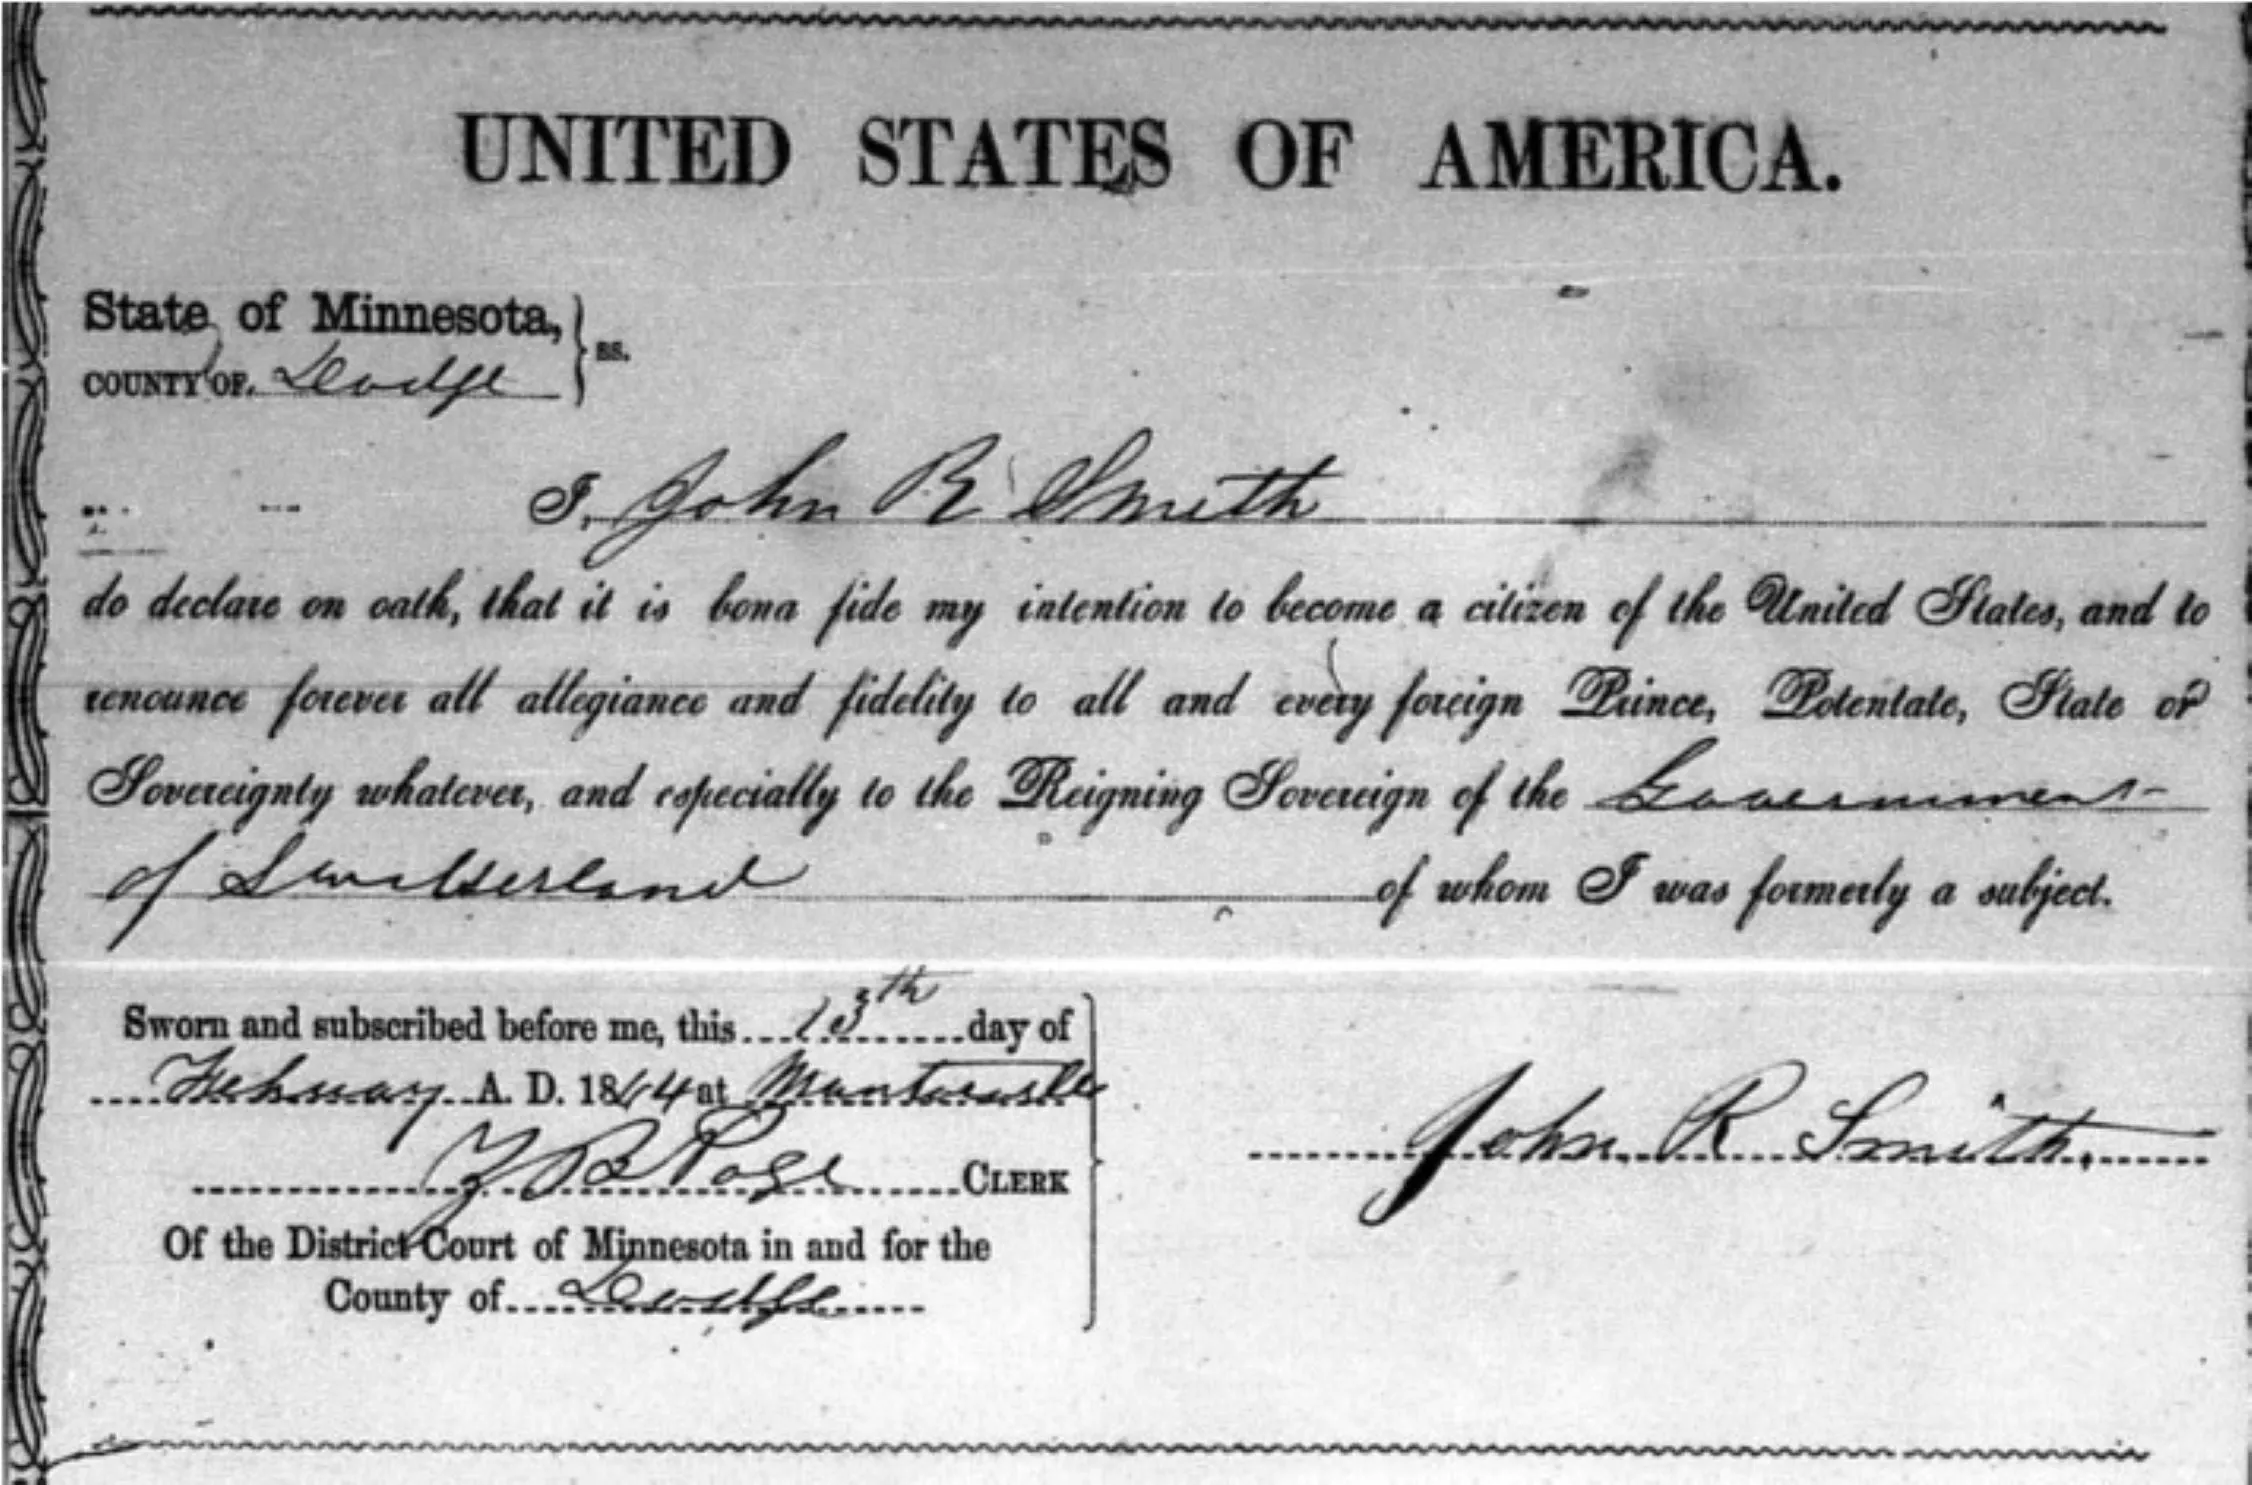 UNITED STATES OF AMERICA.
State of Minnesota,
COUNTY OF. Dodge } ss.
I, John R Smith
do declare on oath, that it is bona fide my intention to become a citizen of the United States, and to
renounce forever all allegiance and fidelity to all and every foreign Prince, Potentate, State or
Sovereignty whatever, and especially to the Reigning Sovereign of the Government
of Switserland of whom I was formerly a subject.
Sworn and subscribed before me, this 13th day of
February A. D. 1864 at
B Page CLERK
Of the District Court of Minnesota in and for the
County of Dodge
John R Smith.